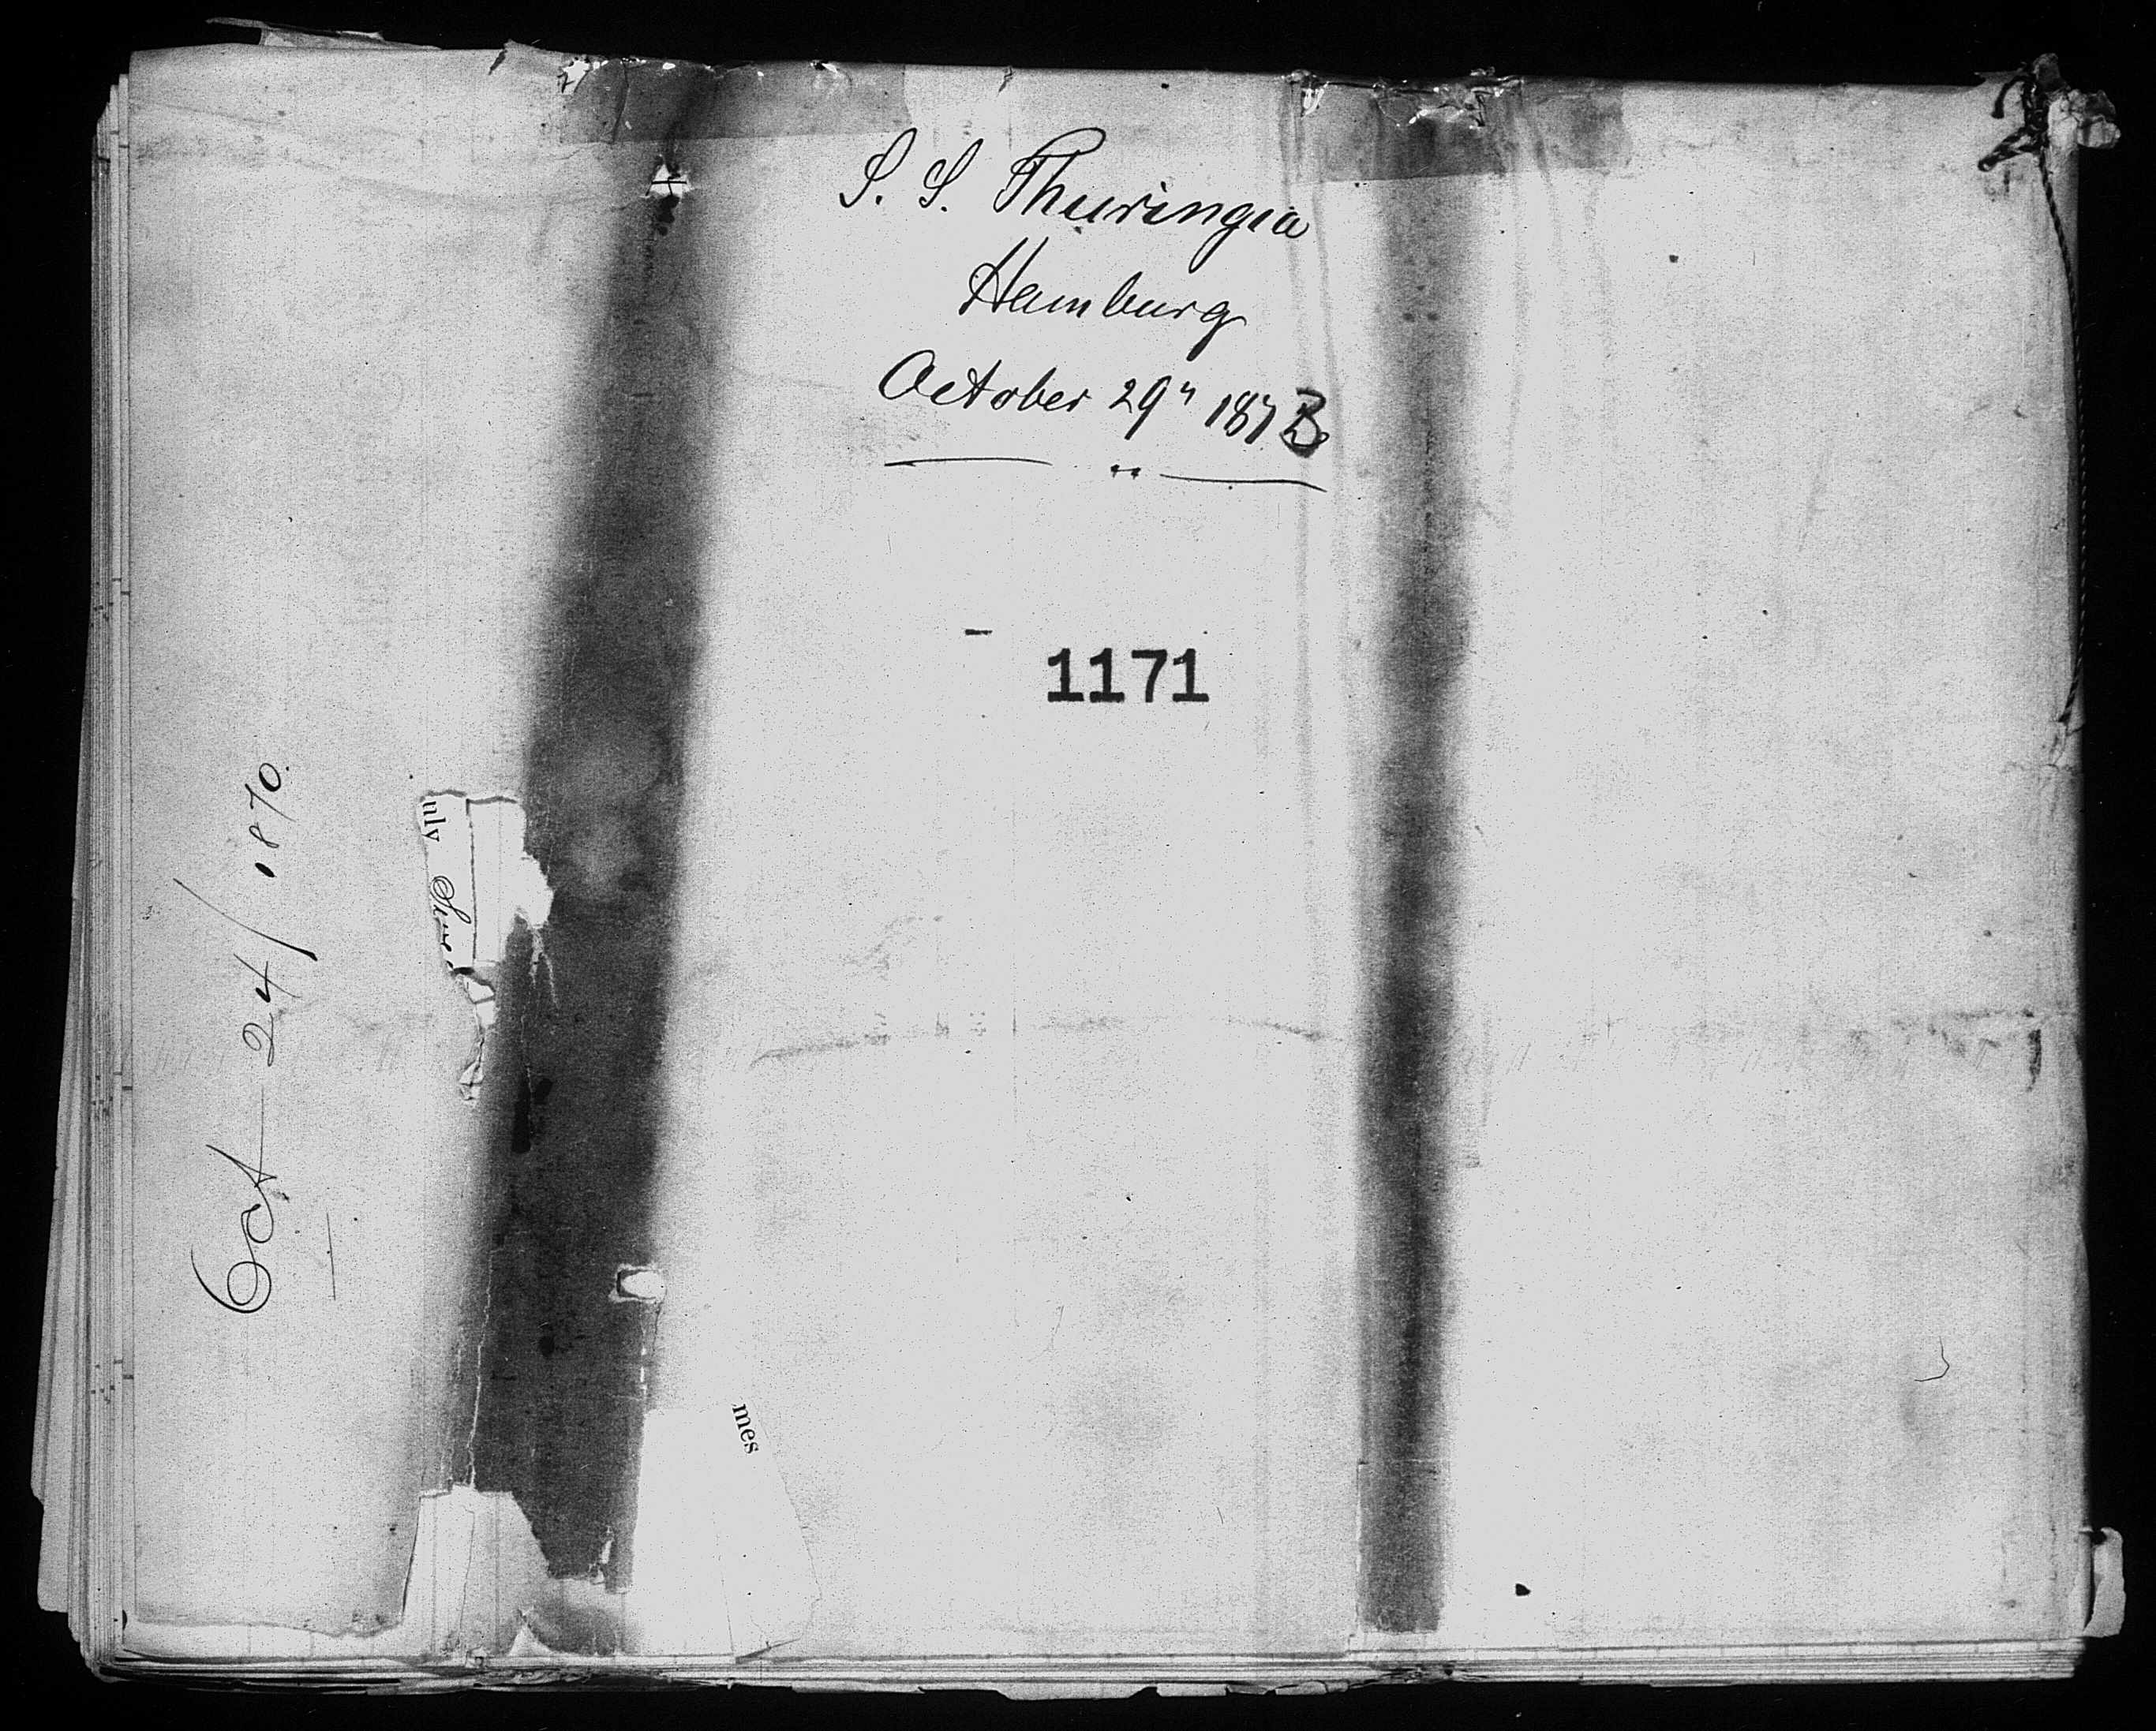 S. S. Thuringia
Hamburg
October 29" 1873
1171
Oct 24/1870.
nly
mes